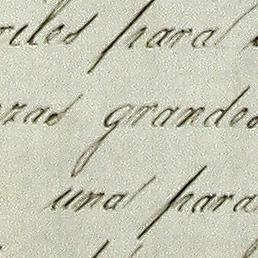 riles para
zas grandes
una para